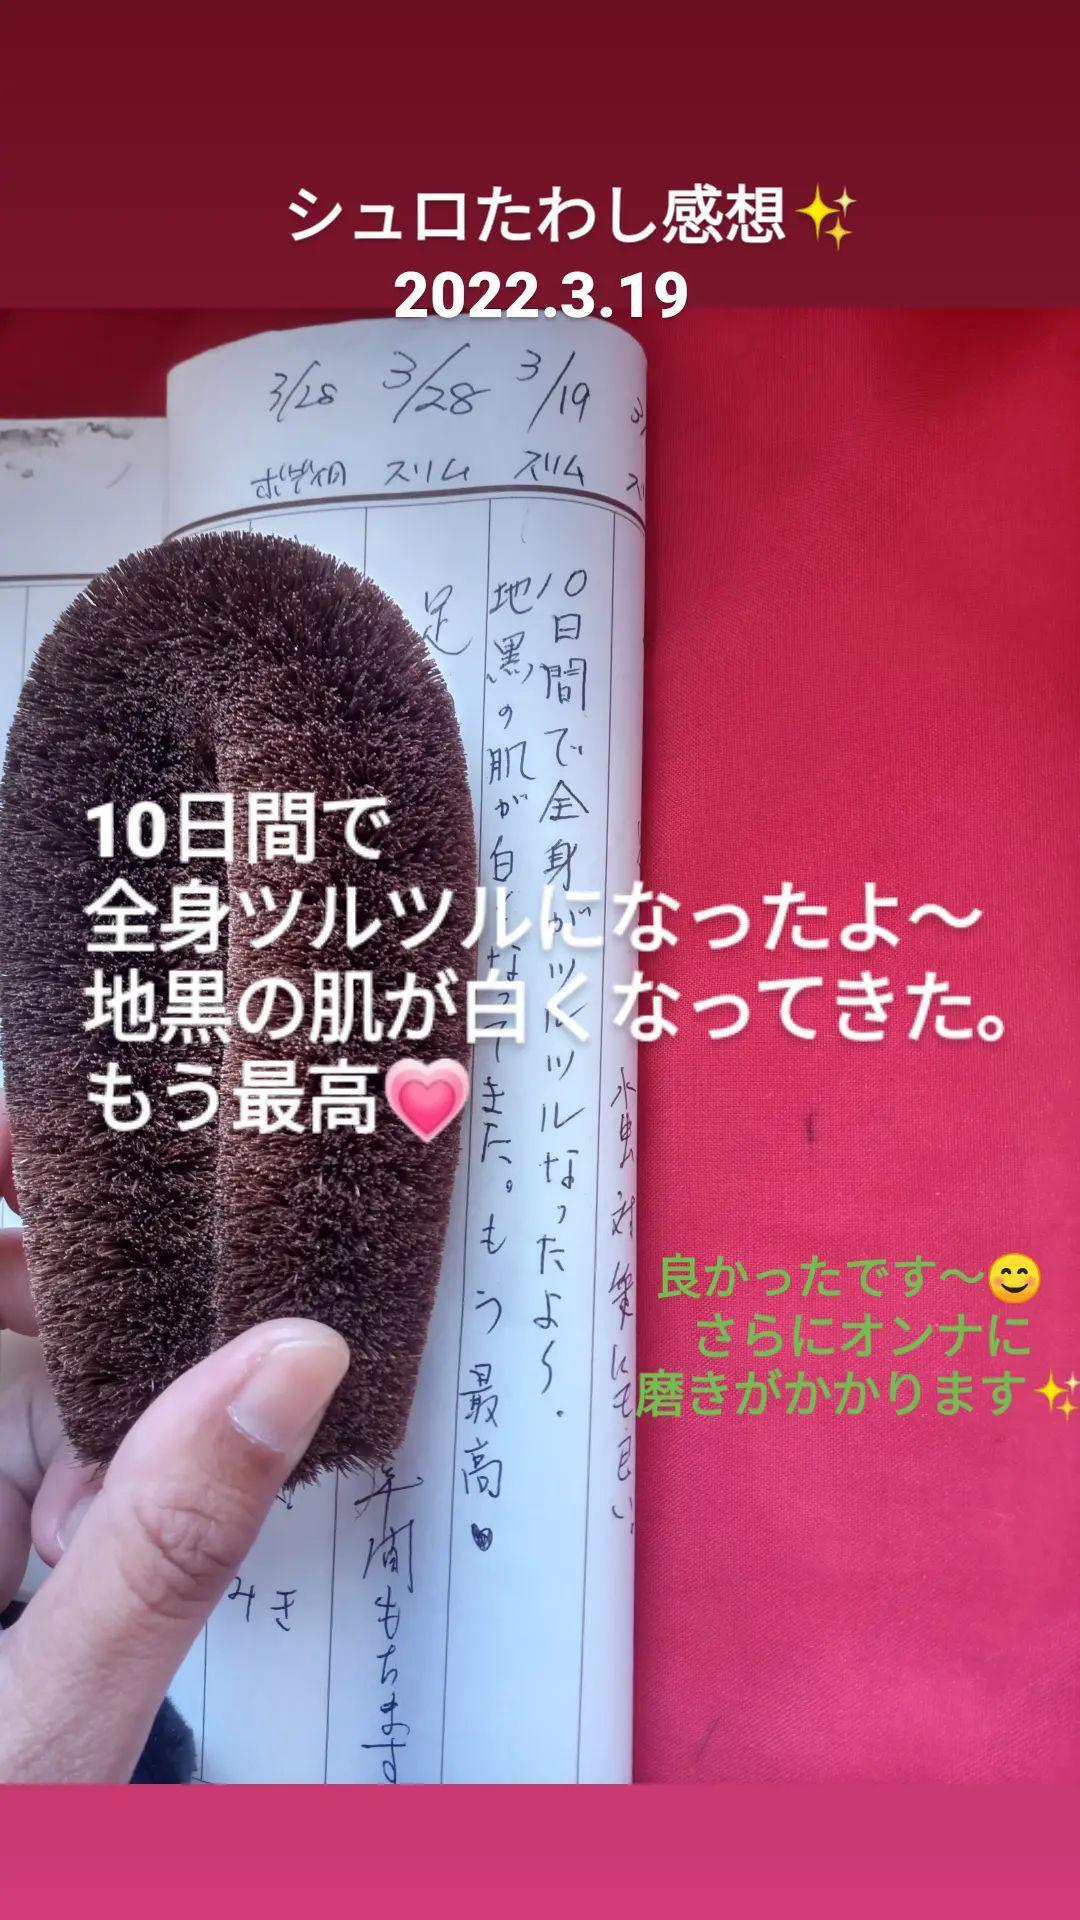 シュロたわし感想✨
2022.3.19
3/19
スリム
10日間で全身がツルツルなったよ〜.
地黒の肌が白くなってきた。もう最高♥
3/28
スリム
足
年間もちます
3/28
みき
水虫対策にも良い。
10日間で
全身ツルツルになったよ〜
地黒の肌が白くなってきた。
もう最高💗
良かったです〜😊
さらにオンナに
磨きがかかります✨